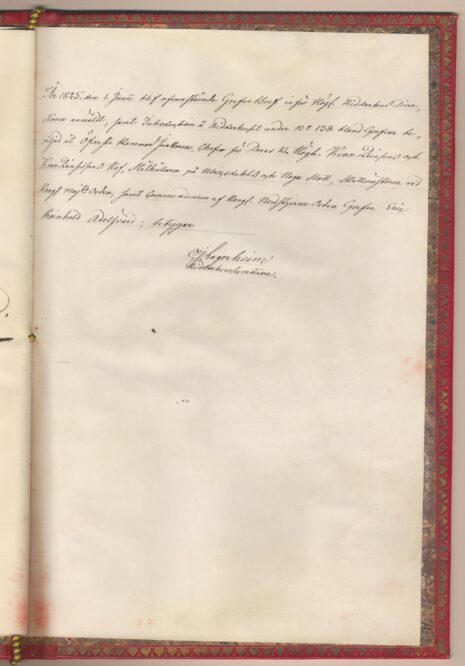 År 1825. den 1. Junii blef ofvanstående Grefve Bref inför Högl. Riddarhus Dire-
ctionen anmäldt, samt Introduction å Riddarhuset under N:o 138. bland Grefvar be-
viljad åt Öfverste Kammar Junkaren, Chefen för Deras Kl. Högh. Kron Prinsens och
Kron Prinsessans Hof, Ståthållaren på Ulricsdahls och Haga Slott, Skattmästaren vid
Kongl. Maj:ts Orden, samt Commendeuren af Kongl. Nordstjerne Orden Grefve Eric
Reinhold Adelsvärd; betygar
Lagerheim
Riddarhus Secreterare.